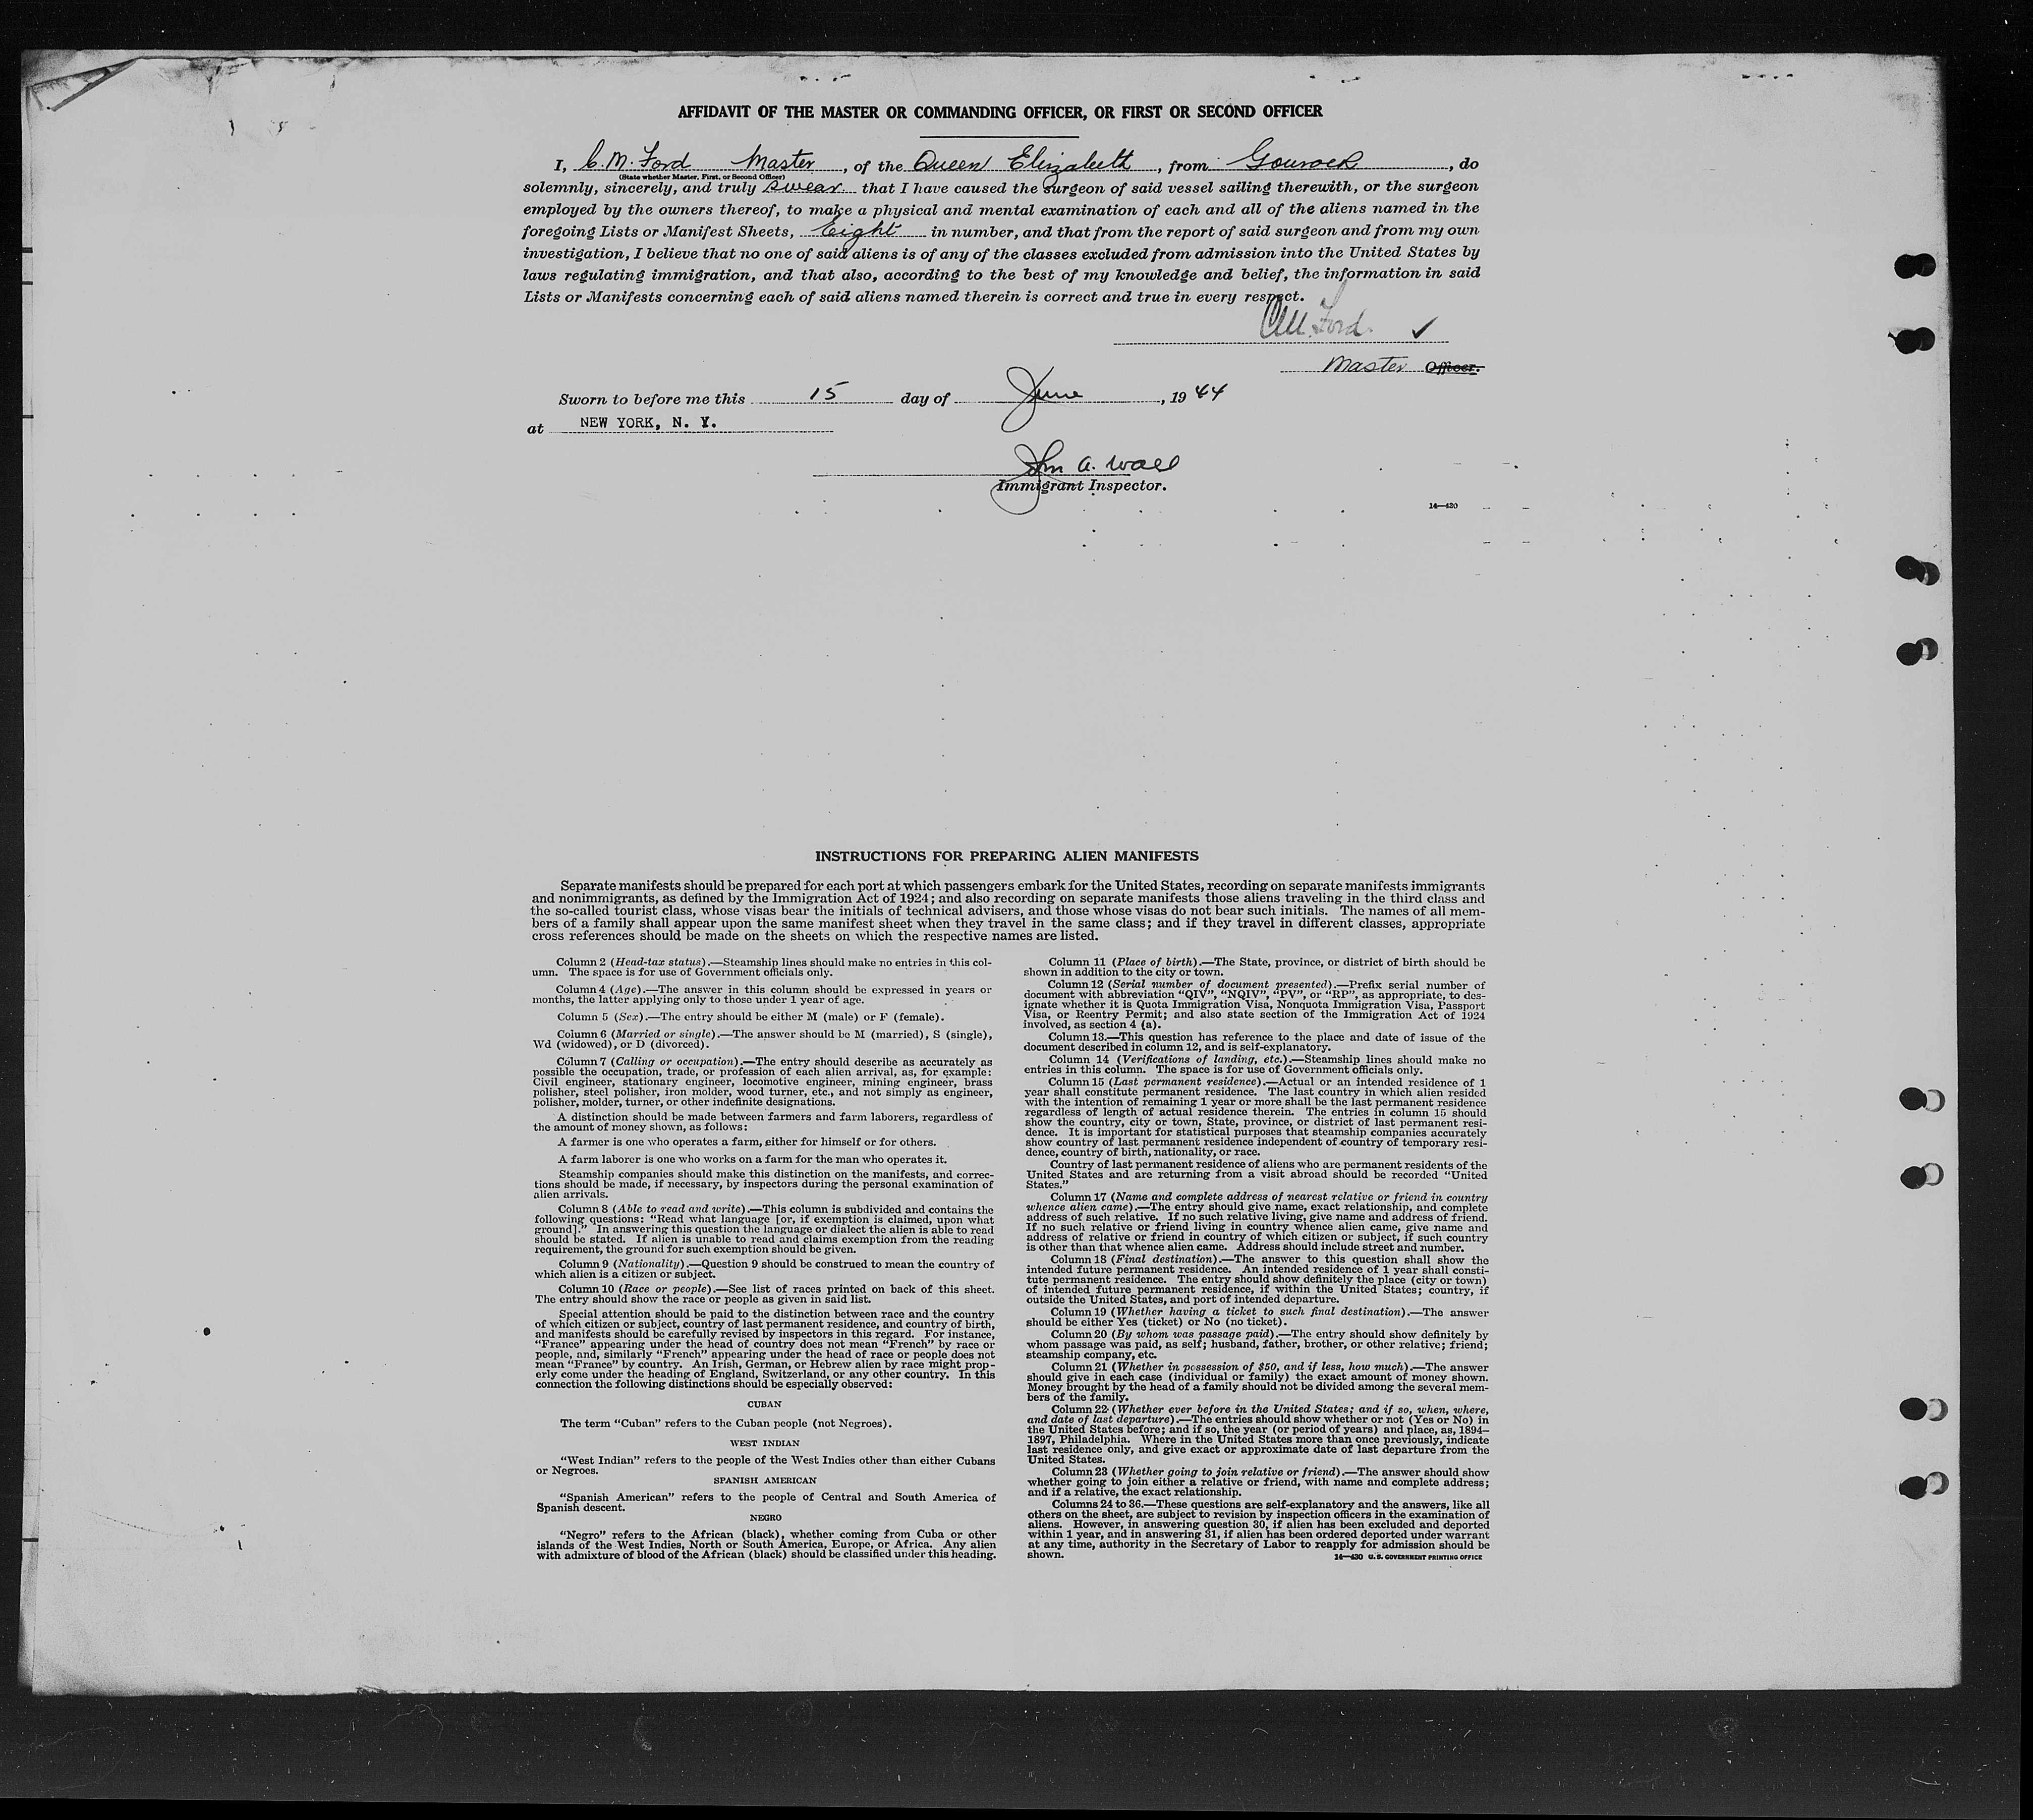 AFFIDAVIT OF THE MASTER OR COMMANDING OFFICER, OR FIRST OR SECOND OFFICER
I, C. M. Ford Master, of the Queen Elizabeth, from Gourock, do
(State whether Master, First, or Second Officer)
solemnly, sincerely, and truly swear that I have caused the surgeon of said vessel sailing therewith, or the surgeon
employed by the owners thereof, to make a physical and mental examination of each and all of the aliens named in the
foregoing Lists or Manifest Sheets, Eight in number, and that from the report of said surgeon and from my own
investigation, I believe that no one of said aliens is of any of the classes excluded from admission into the United States by
laws regulating immigration, and that also, according to the best of my knowledge and belief, the information in said
Lists or Manifests concerning each of said aliens named therein is correct and true in every respect.
C M. Ford. ✓
Master Officer.
Sworn to before me this 15 day of June, 19 44
at NEW YORK, N. Y.
John A. Wall
Immigrant Inspector.
14—430
INSTRUCTIONS FOR PREPARING ALIEN MANIFESTS
Separate manifests should be prepared for each port at which passengers embark for the United States, recording on separate manifests immigrants
and nonimmigrants, as defined by the Immigration Act of 1924; and also recording on separate manifests those aliens traveling in the third class and
the so-called tourist class, whose visas bear the initials of technical advisers, and those whose visas do not bear such initials. The names of all mem-
bers of a family shall appear upon the same manifest sheet when they travel in the same class; and if they travel in different classes, appropriate
cross references should be made on the sheets on which the respective names are listed.
Column 2 (Head-tax status).—Steamship lines should make no entries in this col-
umn. The space is for use of Government officials only.
Column 4 (Age).—The answer in this column should be expressed in years or
months, the latter applying only to those under 1 year of age.
Column 5 (Sex).—The entry should be either M (male) or F (female).
Column 6 (Married or single).—The answer should be M (married), S (single),
Wd (widowed), or D (divorced).
Column 7 (Calling or occupation).—The entry should describe as accurately as
possible the occupation, trade, or profession of each alien arrival, as, for example:
Civil engineer, stationary engineer, locomotive engineer, mining engineer, brass
polisher, steel polisher, iron molder, wood turner, etc., and not simply as engineer,
polisher, molder, turner, or other indefinite designations.
A distinction should be made between farmers and farm laborers, regardless of
the amount of money shown, as follows:
A farmer is one who operates a farm, either for himself or for others.
A farm laborer is one who works on a farm for the man who operates it.
Steamship companies should make this distinction on the manifests, and correc-
tions should be made, if necessary, by inspectors during the personal examination of
alien arrivals.
Column 8 (Able to read and write).—This column is subdivided and contains the
following questions: "Read what language [or, if exemption is claimed, upon what
ground]." In answering this question the language or dialect the alien is able to read
should be stated. If alien is unable to read and claims exemption from the reading
requirement, the ground for such exemption should be given.
Column 9 (Nationality).—Question 9 should be construed to mean the country of
which alien is a citizen or subject.
Column 10 (Race or people).—See list of races printed on back of this sheet.
The entry should show the race or people as given in said list.
Special attention should be paid to the distinction between race and the country
of which citizen or subject, country of last permanent residence, and country of birth,
and manifests should be carefully revised by inspectors in this regard. For instance,
"France" appearing under the head of country does not mean "French" by race or
people, and, similarly "French" appearing under the head of race or people does not
mean "France" by country. An Irish, German, or Hebrew alien by race might prop-
erly come under the heading of England, Switzerland, or any other country. In this
connection the following distinctions should be especially observed:
CUBAN
The term "Cuban" refers to the Cuban people (not Negroes).
WEST INDIAN
"West Indian" refers to the people of the West Indies other than either Cubans
or Negroes.
SPANISH AMERICAN
"Spanish American" refers to the people of Central and South America of
Spanish descent.
NEGRO
"Negro" refers to the African (black), whether coming from Cuba or other
islands of the West Indies, North or South America, Europe, or Africa. Any alien
with admixture of blood of the African (black) should be classified under this heading.
Column 11 (Place of birth).—The State, province, or district of birth should be
shown in addition to the city or town.
Column 12 (Serial number of document presented).—Prefix serial number of
document with abbreviation "QIV", "NQIV", "PV", or "RP", as appropriate, to des-
ignate whether it is Quota Immigration Visa, Nonquota Immigration Visa, Passport
Visa, or Reentry Permit; and also state section of the Immigration Act of 1924
involved, as section 4 (a).
Column 13.—This question has reference to the place and date of issue of the
document described in column 12, and is self-explanatory.
Column 14 (Verifications of landing, etc.).—Steamship lines should make no
entries in this column. The space is for use of Government officials only.
Column 15 (Last permanent residence).—Actual or an intended residence of 1
year shall constitute permanent residence. The last country in which alien resided
with the intention of remaining 1 year or more shall be the last permanent residence
regardless of length of actual residence therein. The entries in column 15 should
show the country, city or town, State, province, or district of last permanent resi-
dence. It is important for statistical purposes that steamship companies accurately
show country of last permanent residence independent of country of temporary resi-
dence, country of birth, nationality, or race.
Country of last permanent residence of aliens who are permanent residents of the
United States and are returning from a visit abroad should be recorded "United
States."
Column 17 (Name and complete address of nearest relative or friend in country
whence alien came).—The entry should give name, exact relationship, and complete
address of such relative. If no such relative living, give name and address of friend.
If no such relative or friend living in country whence alien came, give name and
address of relative or friend in country of which citizen or subject, if such country
is other than that whence alien came. Address should include street and number.
Column 18 (Final destination).—The answer to this question shall show the
intended future permanent residence. An intended residence of 1 year shall consti-
tute permanent residence. The entry should show definitely the place (city or town)
of intended future permanent residence, if within the United States; country, if
outside the United States, and port of intended departure.
Column 19 (Whether having a ticket to such final destination).—The answer
should be either Yes (ticket) or No (no ticket).
Column 20 (By whom was passage paid).—The entry should show definitely by
whom passage was paid, as self; husband, father, brother, or other relative; friend;
steamship company, etc.
Column 21 (Whether in possession of $50, and if less, how much).—The answer
should give in each case (individual or family) the exact amount of money shown.
Money brought by the head of a family should not be divided among the several mem-
bers of the family.
Column 22 (Whether ever before in the United States; and if so, when, where,
and date of last departure).—The entries should show whether or not (Yes or No) in
the United States before; and if so, the year (or period of years) and place, as, 1894–
1897, Philadelphia. Where in the United States more than once previously, indicate
last residence only, and give exact or approximate date of last departure from the
United States.
Column 23 (Whether going to join relative or friend).—The answer should show
whether going to join either a relative or friend, with name and complete address;
and if a relative, the exact relationship.
Columns 24 to 36.—These questions are self-explanatory and the answers, like all
others on the sheet, are subject to revision by inspection officers in the examination of
aliens. However, in answering question 30, if alien has been excluded and deported
within 1 year, and in answering 31, if alien has been ordered deported under warrant
at any time, authority in the Secretary of Labor to reapply for admission should be
shown.
14—430 U. S. GOVERNMENT PRINTING OFFICE